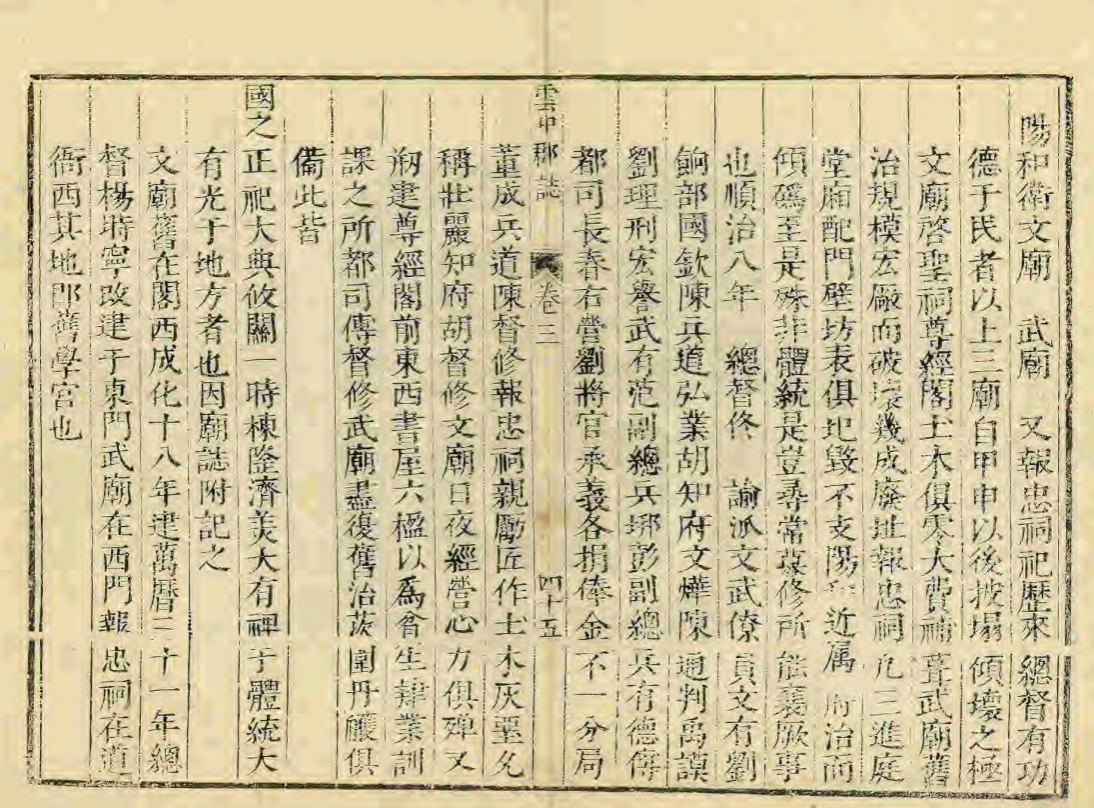 陽和衛文廟 武廟 又報忠祠祀歷來 總督有功
德于民者以上三廟自甲申以後披塌 傾壞之極
文廟啓聖祠尊經閣土木俱零大費補 葺武廟舊
治規模宏廠而破壞幾成廢址報忠祠 凡三進庭
堂廂配門壁坊表俱圯毀不支陽和近属 府治而
傾磚至是殊非體統是豈尋常募修所 能襄厥事
也順治八年 總督佟 諭派文武僚 員文有劉
餉部國欽陳兵道弘業胡知府文燁陳 通判禹謨
劉理刑宏譽武有范副總兵 彭副總 兵有德傳
都司長春右營劉將官承義各捐俸金 不一分局
雲中郡誌 卷三 四十五
董成兵道陳督修報忠祠親勵匠作土 木灰堊
稱壯麗知府胡督修文廟日夜經營心 力俱殫又
剏建尊經閣前東西書屋六楹以爲 生肄業訓
課之所都司傳督修武廟盡復舊治茨 圍丹雘俱
備此皆
國之正祀大典攸關一時棟隆濟美大有裨 于體統大
有光于地方者也因廟誌附記之
文廟舊在閣西成化十八年建萬曆三 十一年總
督楊時寧改建于東門武廟在西門報 忠祠在道
衙西其地即舊學宮也